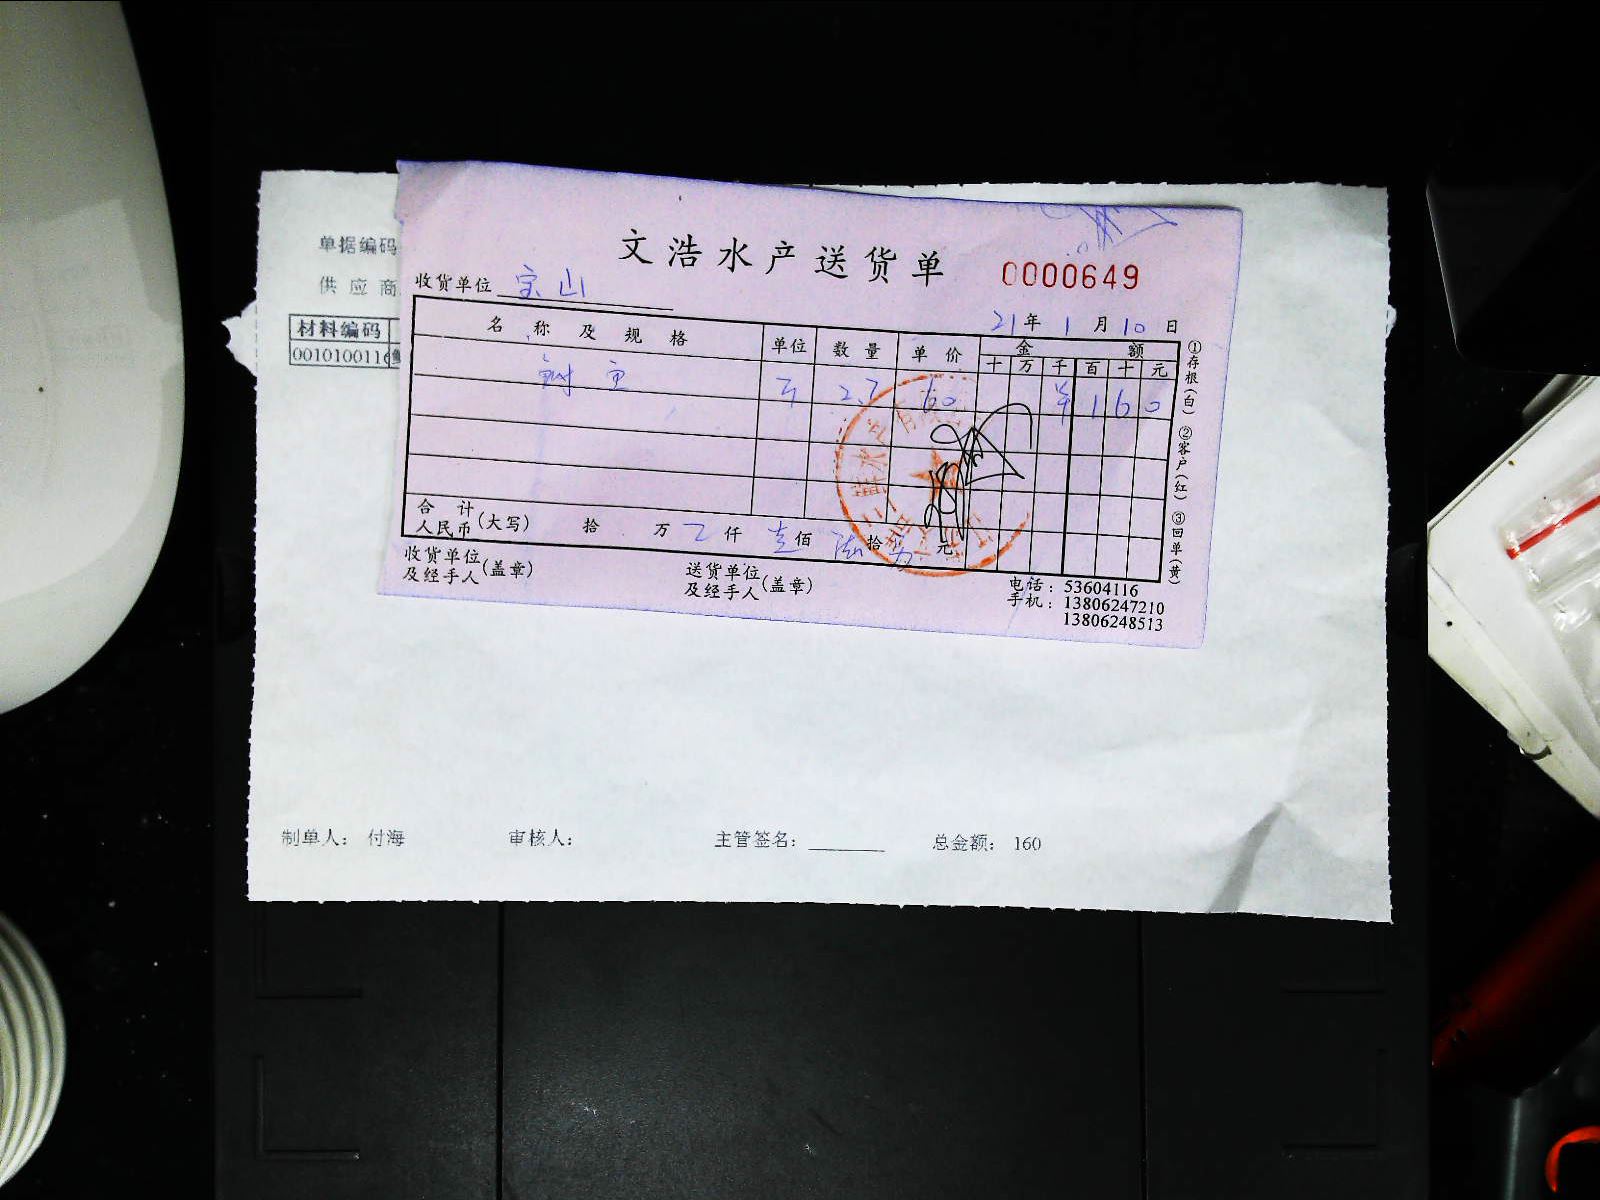 单据编码
供应商
文浩水产送货单
0000649
收货单位 宝山
21年1月10日
材料编码
0010100116
名称及规格 单位 数量 单价 金额
十 万 千 百 十 元
60 1 6 0
合计
人民币(大写) 拾 万 仟 壹佰 陆拾 元
收货单位
及经手人(盖章)
送货单位
及经手人(盖章)
电话：53604116
手机：13806247210
13806248513
①存根(白) ②客户(红) ③回单(黄)
制单人： 付海 审核人： 主管签名： 总金额： 160